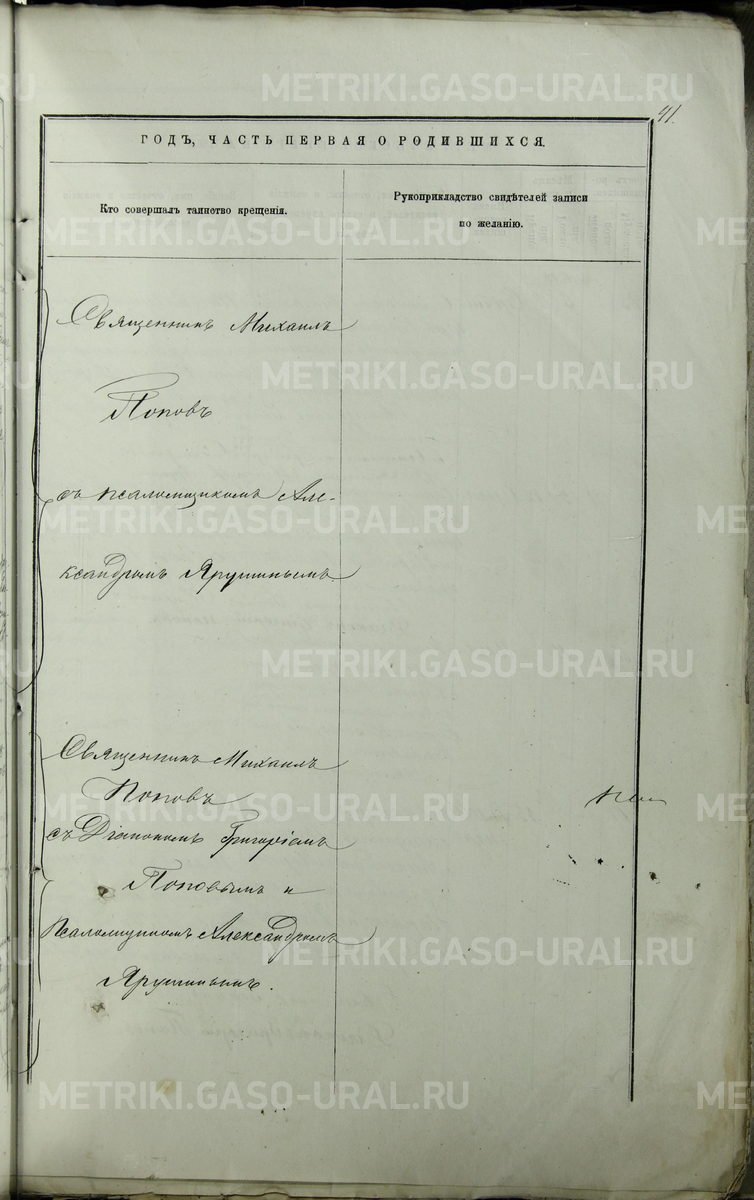 METRIKI.GASO-URAL.RU
41.
ГОДЪ, ЧАСТЬ ПЕРВАЯ О РОДИВШИХСЯ.
Кто совершалъ таинство крещенія.
Рукоприкладство свидѣтелей записи
по желанію.
Священникъ Михаилъ
Поповъ
съ псаломщикомъ Але-
ксандромъ Ярушинымъ
Священникъ Михаилъ
Поповъ
съ Діакономъ Григоріемъ
Поповымъ и
Псаломщикомъ Александромъ
Ярушинымъ.